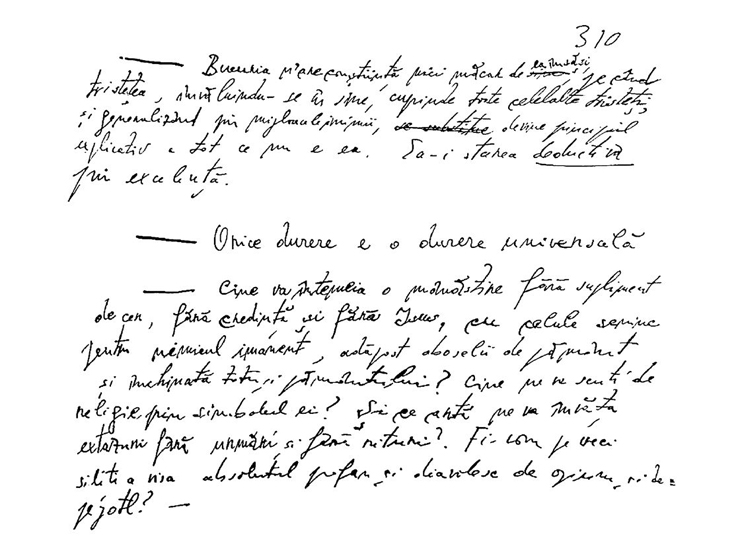 310
— Bucuria n'are conștiință nici măcar de ea însăși, pe când
tristețea, învăluindu-se în sine, cuprinde toate celelalte tristeți,
și generalizând prin mijloacele inimii, devine principiul
explicativ a tot ce nu e ea. Ea-i starea deductivă
prin excelență.
— Orice durere e o durere universală
— Cine va întemeia o mânăstire fără supliment
de cer, fără credință și fără Isus, cu celule senine
pentru nimicul imanent, adăpost oboselii de pământ
și închinată totuși pământului? Cine ne va scuti de
religie prin simbolul ei? Și ce artă ne va învăța
extazuri fără urmări și fără rituri? Fi-vom pe veci
siliți a visa absolutul profan, și diavolesc de opium, și de